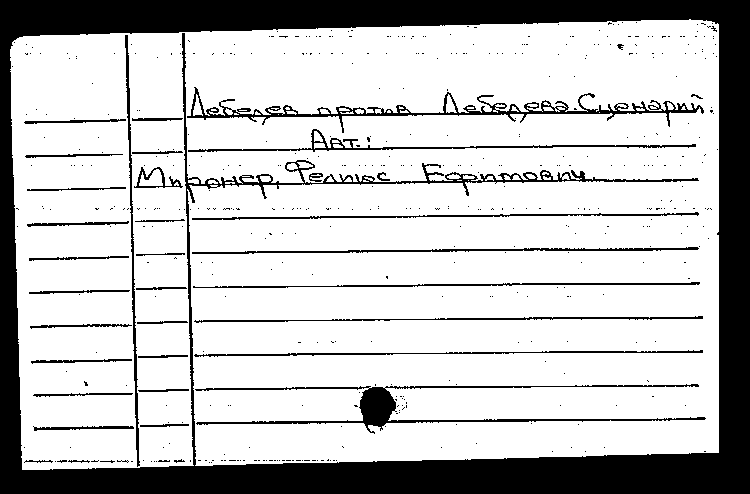 Лебедев против Лебедева. Сценарий.
Авт.:
Миронер, Феликс Ефимович.